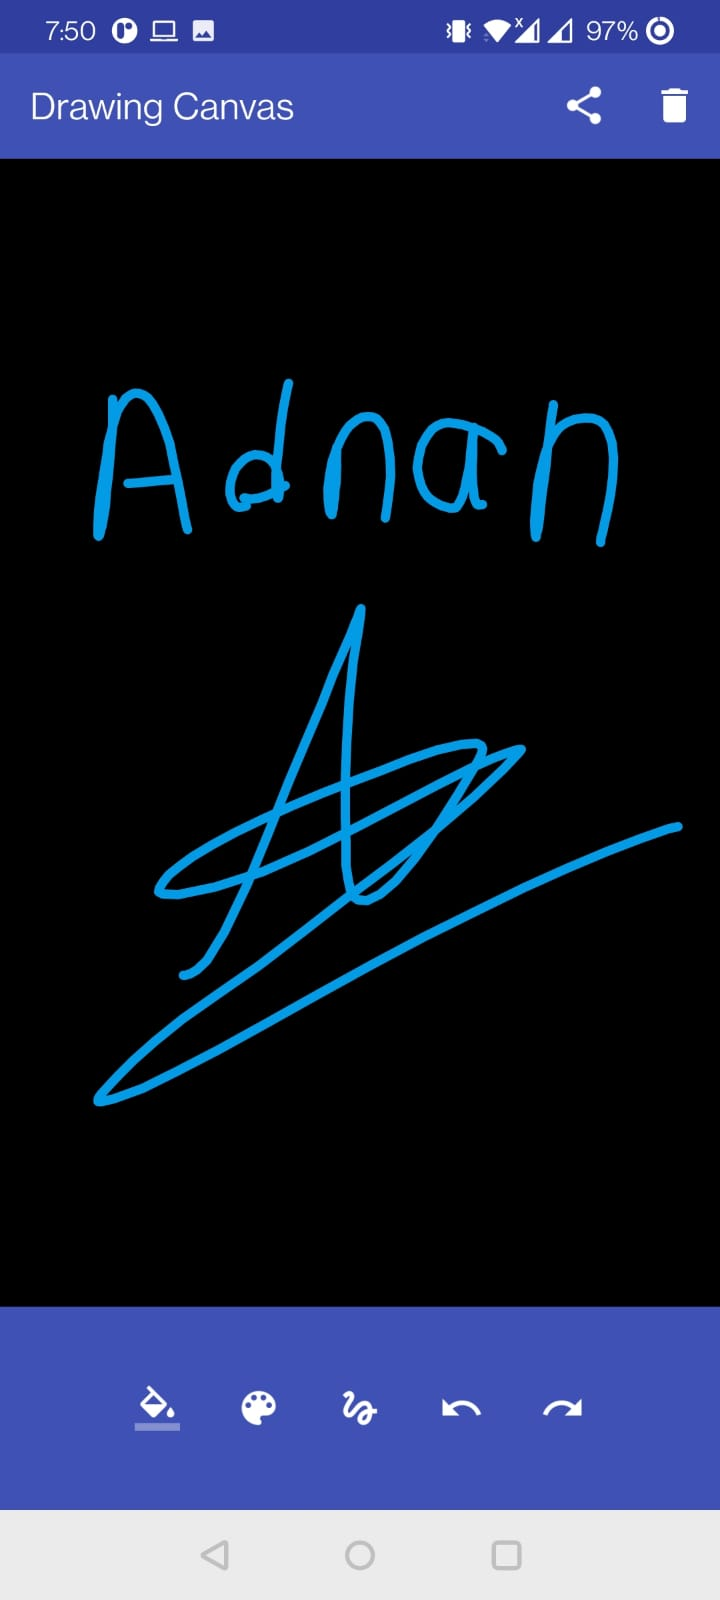 7:50 97%
Drawing Canvas
Adnan